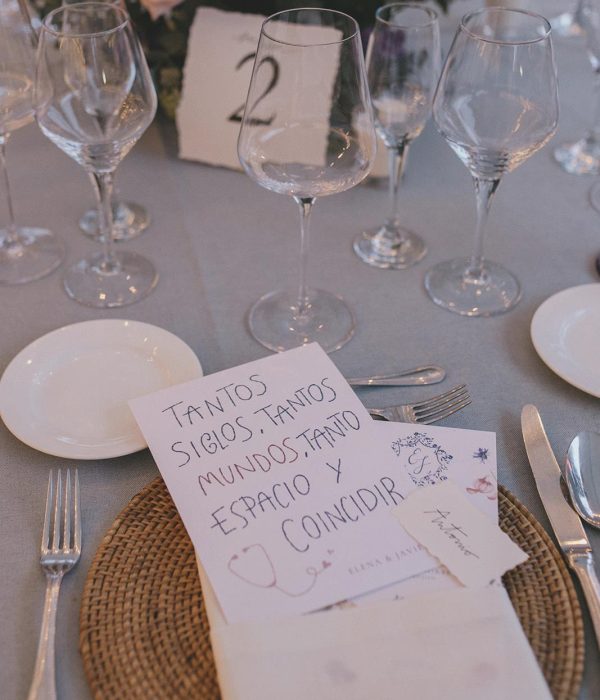 2
TANTOS
SIGLOS, TANTOS
MUNDOS, TANTO
ESPACIO Y
COINCIDIR
ELENA & JAVIE
Antonio